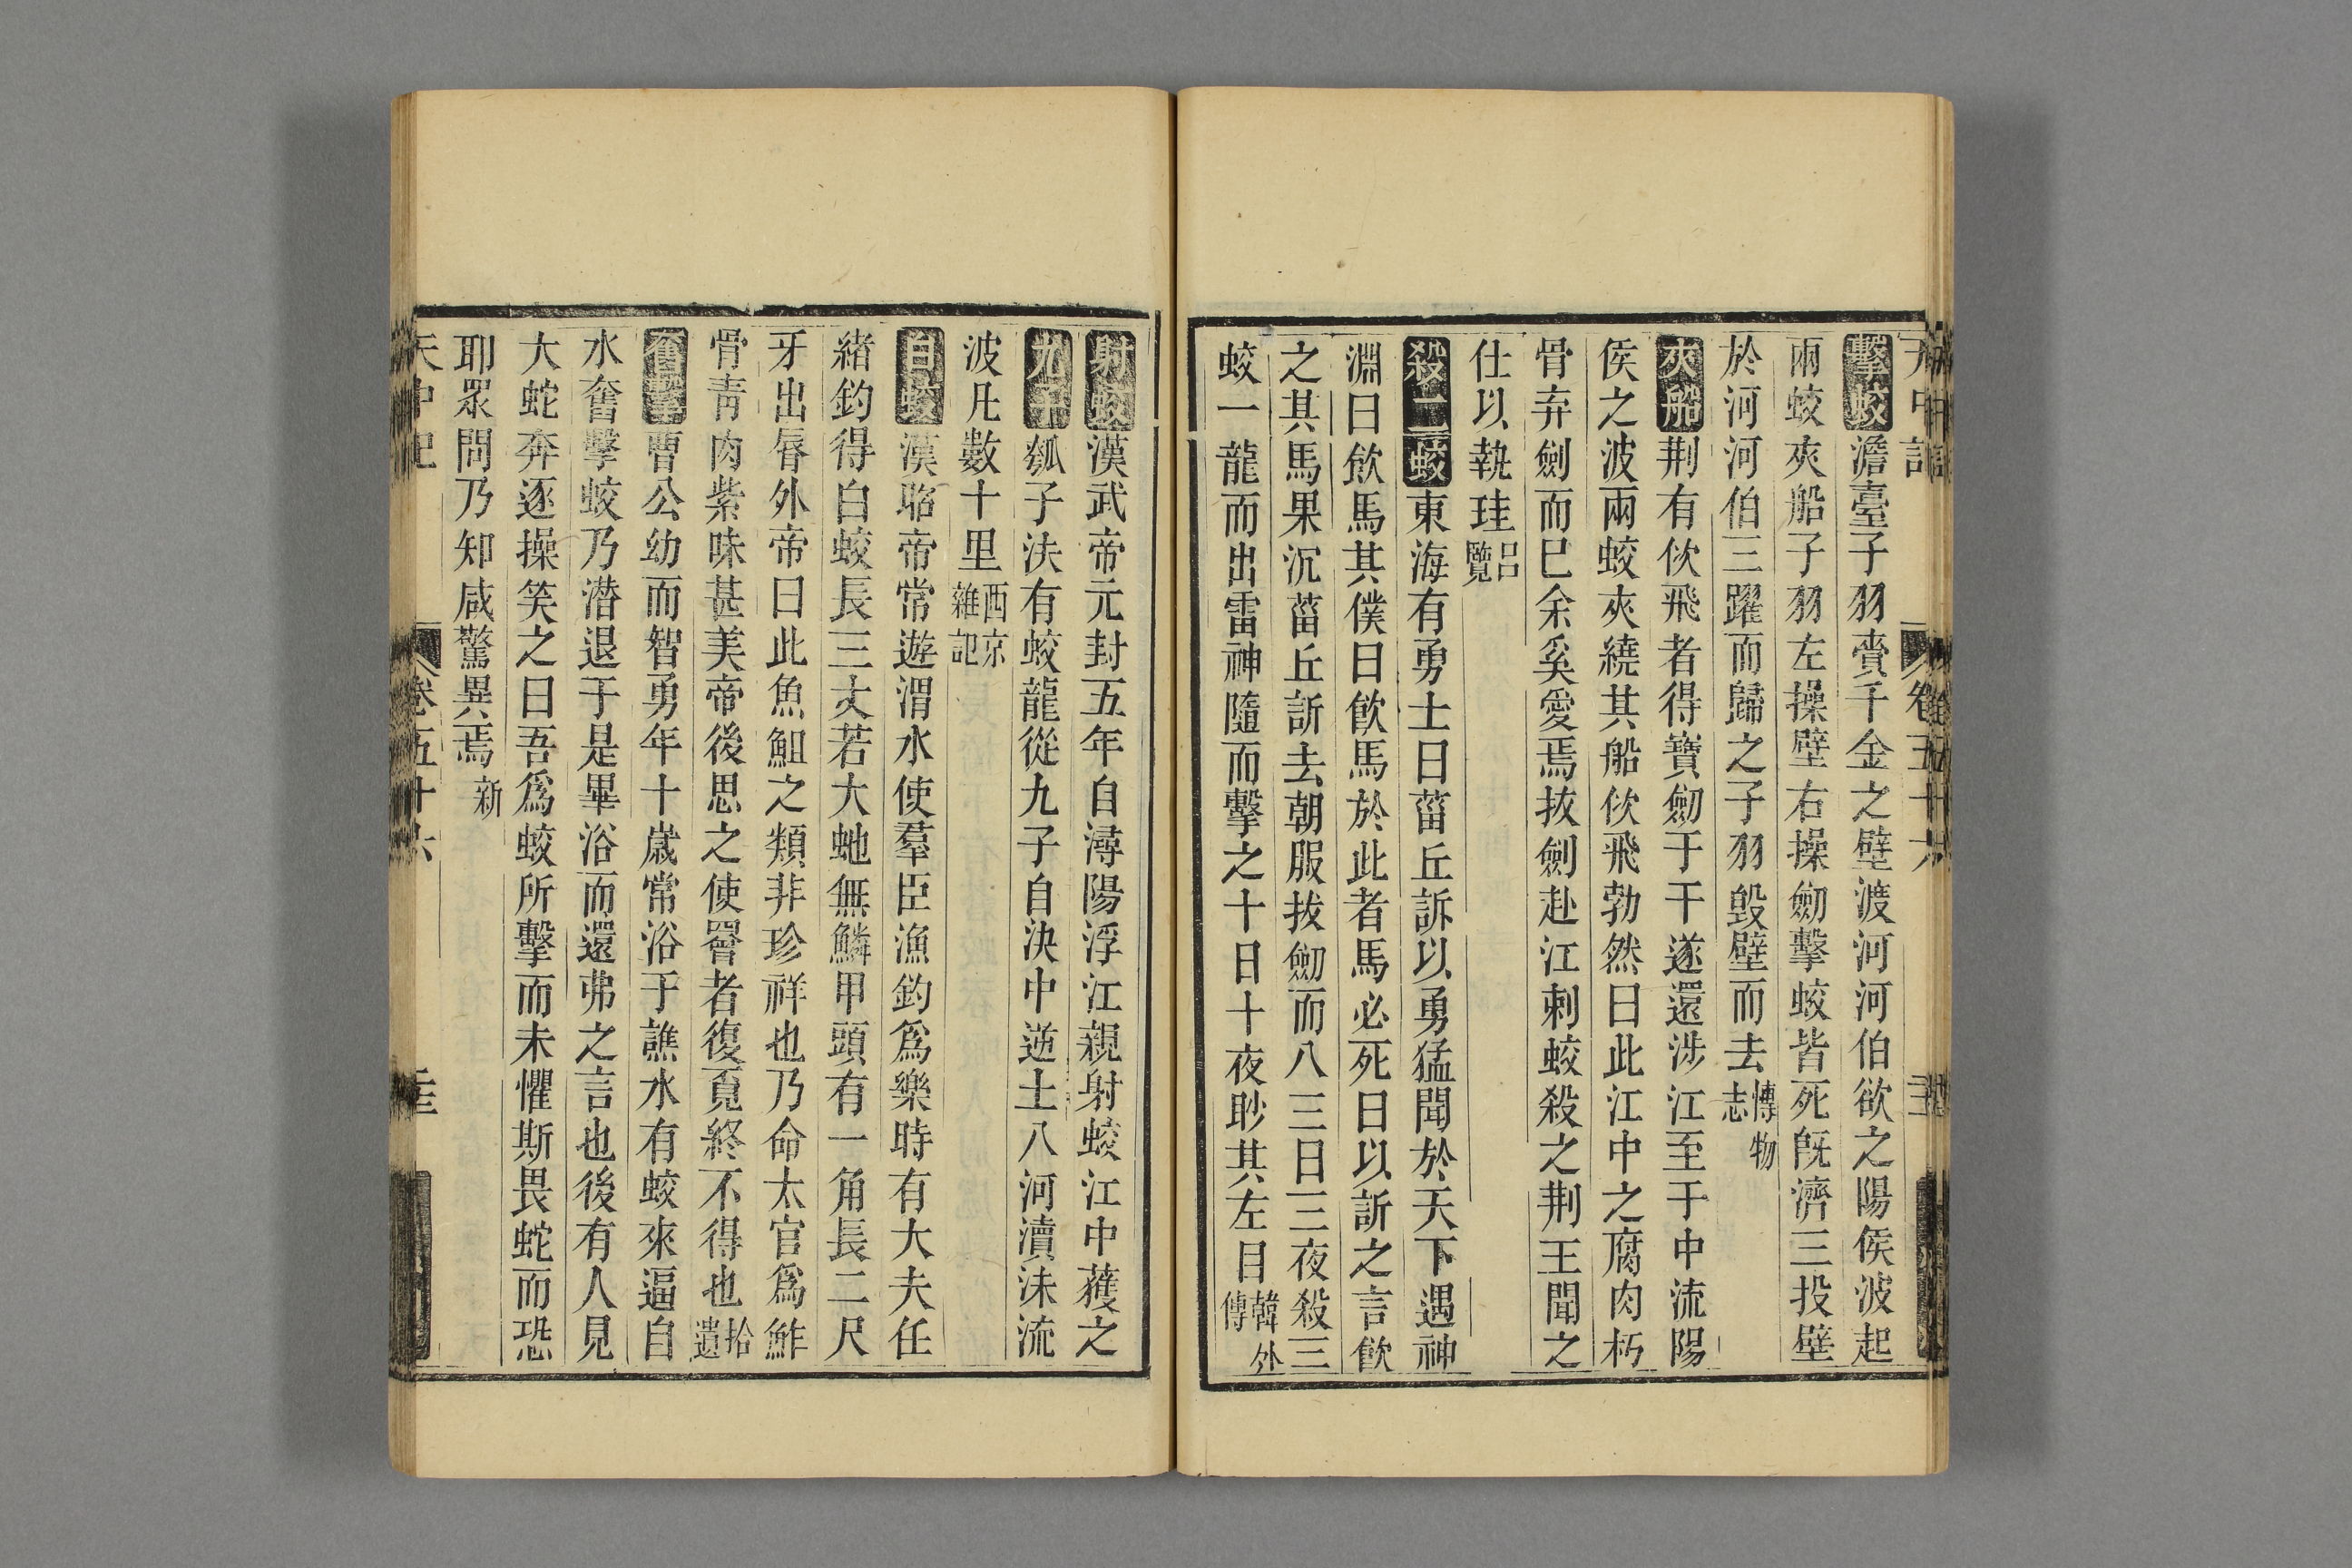 天中記
卷五十六
擊蛟澹臺子羽賫千金之壁渡河河伯欲之陽侯波起
兩蛟夾船子羽左操壁右操劒擊蛟皆死旣濟三投壁
於河河伯三躍而歸之子羽毀壁而去博物志
夾船荆有佽飛者得寶劒于干遂還涉江至于中流陽
侯之波兩蛟夾繞其船佽飛勃然曰此江中之腐肉朽
骨弃劍而巳余奚愛焉拔劍赴江刺蛟殺之荆王聞之
仕以執珪呂覽
殺二蛟東海有勇士曰菑丘訴以勇猛聞於天下遇神
淵曰飲馬其僕曰飲馬於此者馬必死曰以訢之言飲
之其馬果沉菑丘訢去朝服拔劒而八三日三夜殺三
蛟一龍而出雷神隨而擊之十日十夜眇其左目韓外傳
射蛟漢武帝元封五年自潯陽浮江親射蛟江中蒦之
九子瓠子決有蛟龍從九子自決中逆上八河濆沬流
波凡數十里西京雜記
白蛟漢昭帝常遊渭水使羣臣漁釣爲樂時有大夫任
緒釣得白蛟長三丈若大虵無鱗甲頭有一角長二尺
牙出唇外帝曰此魚䱉之類非珍祥也乃命太官爲鮓
骨靑肉紫味甚美帝後思之使罾者復覔終不得也拾遺
奮擊曹公幼而智勇年十歳常浴于譙水有蛟來逼自
水奮擊蛟乃潜退于是畢浴而還弗之言也後有人見
大蛇奔逐操笑之曰吾爲蛟所擊而未懼斯畏蛇而恐
耶眾問乃知咸驚異焉新
天中記
卷五十六